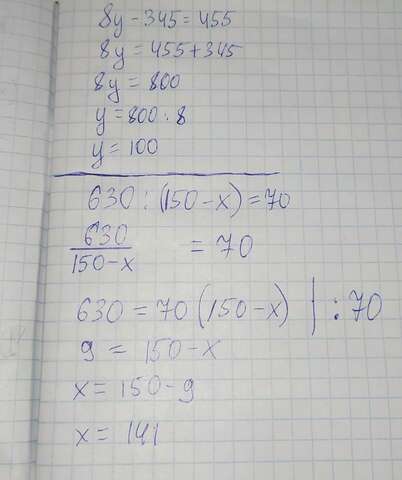 8y - 345 = 455
8y = 455 + 345
8y = 800
y = 800 : 8
y = 100
630 : (150 - x) = 70
630
150 - x
= 70
630 = 70 (150 - x) | : 70
9 = 150 - x
x = 150 - 9
x = 141